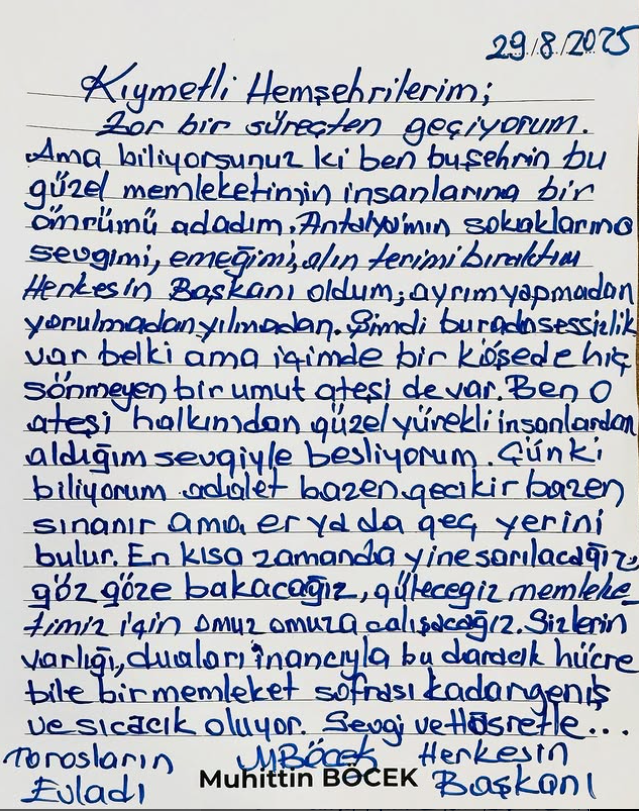 29/8/2025
Kıymetli Hemşehrilerim;
Zor bir süreçten geçiyorum.
Ama biliyorsunuz ki ben buşehrin bu
güzel memleketimin insanlarına bir
ömrümü adadım. Antalya'mın sokaklarına
sevgimi, emeğimi, alın terimi bıraktım
Herkesin Başkanı oldum; ayrım yapmadan
yorulmadan yılmadan. Şimdi burada sessizlik
var belki ama içimde bir köşede hiç
sönmeyen bir umut ateşi de var. Ben O
ateşi halkımdan güzel yürekli insanlardan
aldığım sevgiyle besliyorum. Çünki
biliyorum adalet bazen gecikir bazen
sınanır ama er ya da geç yerini
bulur. En kısa zamanda yine sarılacağız,
göz göze bakacağız, güleceğiz memleke_
timiz için omuz omuza çalışacağız. Sizlerin
varlığı, duaları inancıyla bu daracık hücre
bile bir memleket sofrası kadar geniş
ve sıcacık oluyor. Sevgi ve Hasretle...
Torosların MBöcek Herkesin
Evladı Muhittin BÖCEK Başkanı